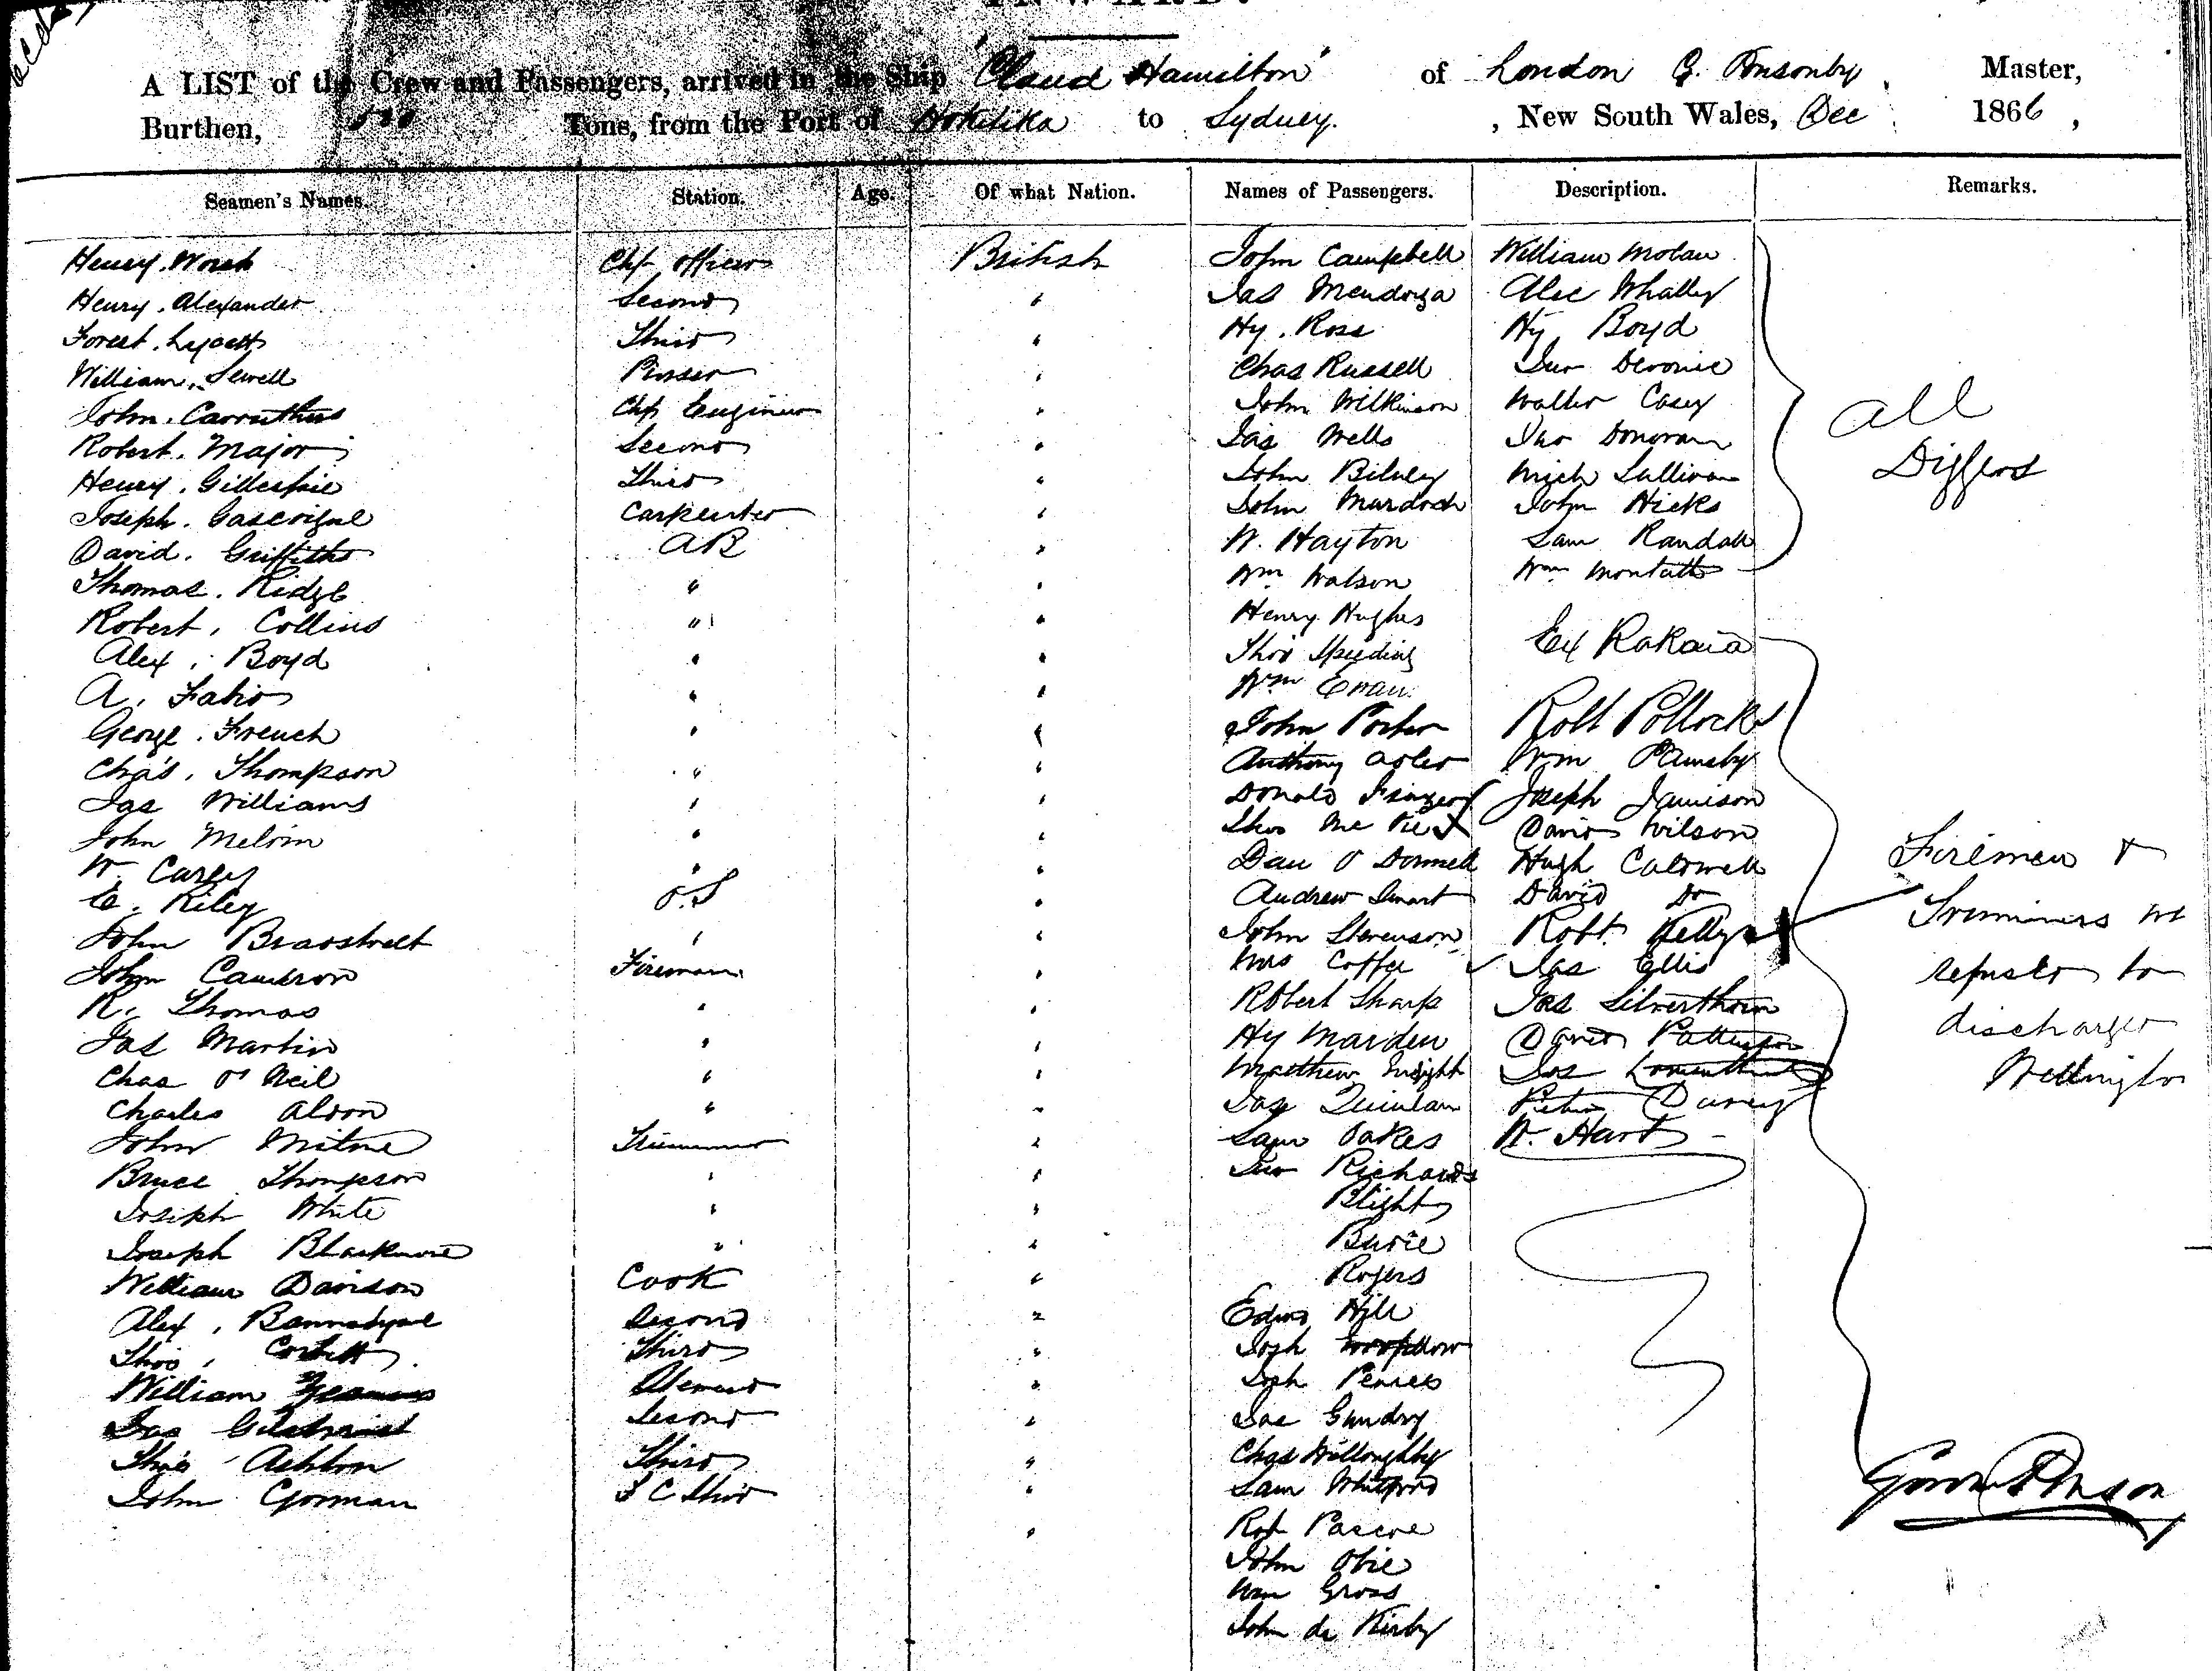 INWARD.
A LIST of the Crew and Passengers, arrived in the Ship "Claud Hamilton" of London G. Ponsonby, Master,
Burthen, Tons, from the Port of Hokitika to Sydney. , New South Wales, Dec 1866,
Seamen's Names. Station. Age. Of what Nation. Names of Passengers. Description. Remarks.
Henry. Chf Officer British John Campbell William
Henry. Alexander Second " Jas Mendoza Alec Whally
Forest. Lycett Third " Hy. Ross Hy Boyd
William. Sewell Purser " Chas Russell
John. Carruthers Chf Engineer " John Wilkinson Walter Casey
Robert. Major Second " Jas Wells Jno Donovan
Henry. Gillespie Third " John Bilney Mich Sullivan
Joseph. Gascoigne Carpenter " John Murdoch John Hicks
David. Griffiths AB " W. Hayton Sam Randall
Thomas. Ridge " " Wm Watson Wm
all
Diggers
Robert. Collins " " Henry Hughes
Alex. Boyd " " Thos Ex Rakaia
A. " " Wm
George. French " " John Porter Robt Pollock
Chas. Thompson " " Anthony Wm
Jas Williams " " Donald Joseph Jamison
John Melvin " " Thos David Wilson
W. Carley " " Dan O Donnell Hugh Caldwell
E. Riley O.S " Andrew Smart David Do
John " " John Stevenson Robt Kelly
John Cameron Fireman " Coffee Jas Ellis
R. Thomas " " Robert Sharp Jas Silverthorn
Jas Martin " " Hy Marden David Patterson
Chas O'Neil " " Matthew Jos
Charles " " Jas Quinlan Peter
John Milne Trimmer " Sam Oakes W. Hart
Firemen &
Trimmers we
refused to
discharge
Wellington
Bruce Thompson " " Jno Richards
Joseph White " " Blight
Joseph Blackmore " "
William Davison Cook " Rogers
Alex. Second " Edwd Hill
Thos. Corbett Third " Josh
William Steward " Josh
Jas Gilchrist Second " Jas Gundry
Thos Ashton Third " Chas Willoughby
John Gorman " Sam Whitford
" Robt Pascoe
John
Wm Gross
John Kirby